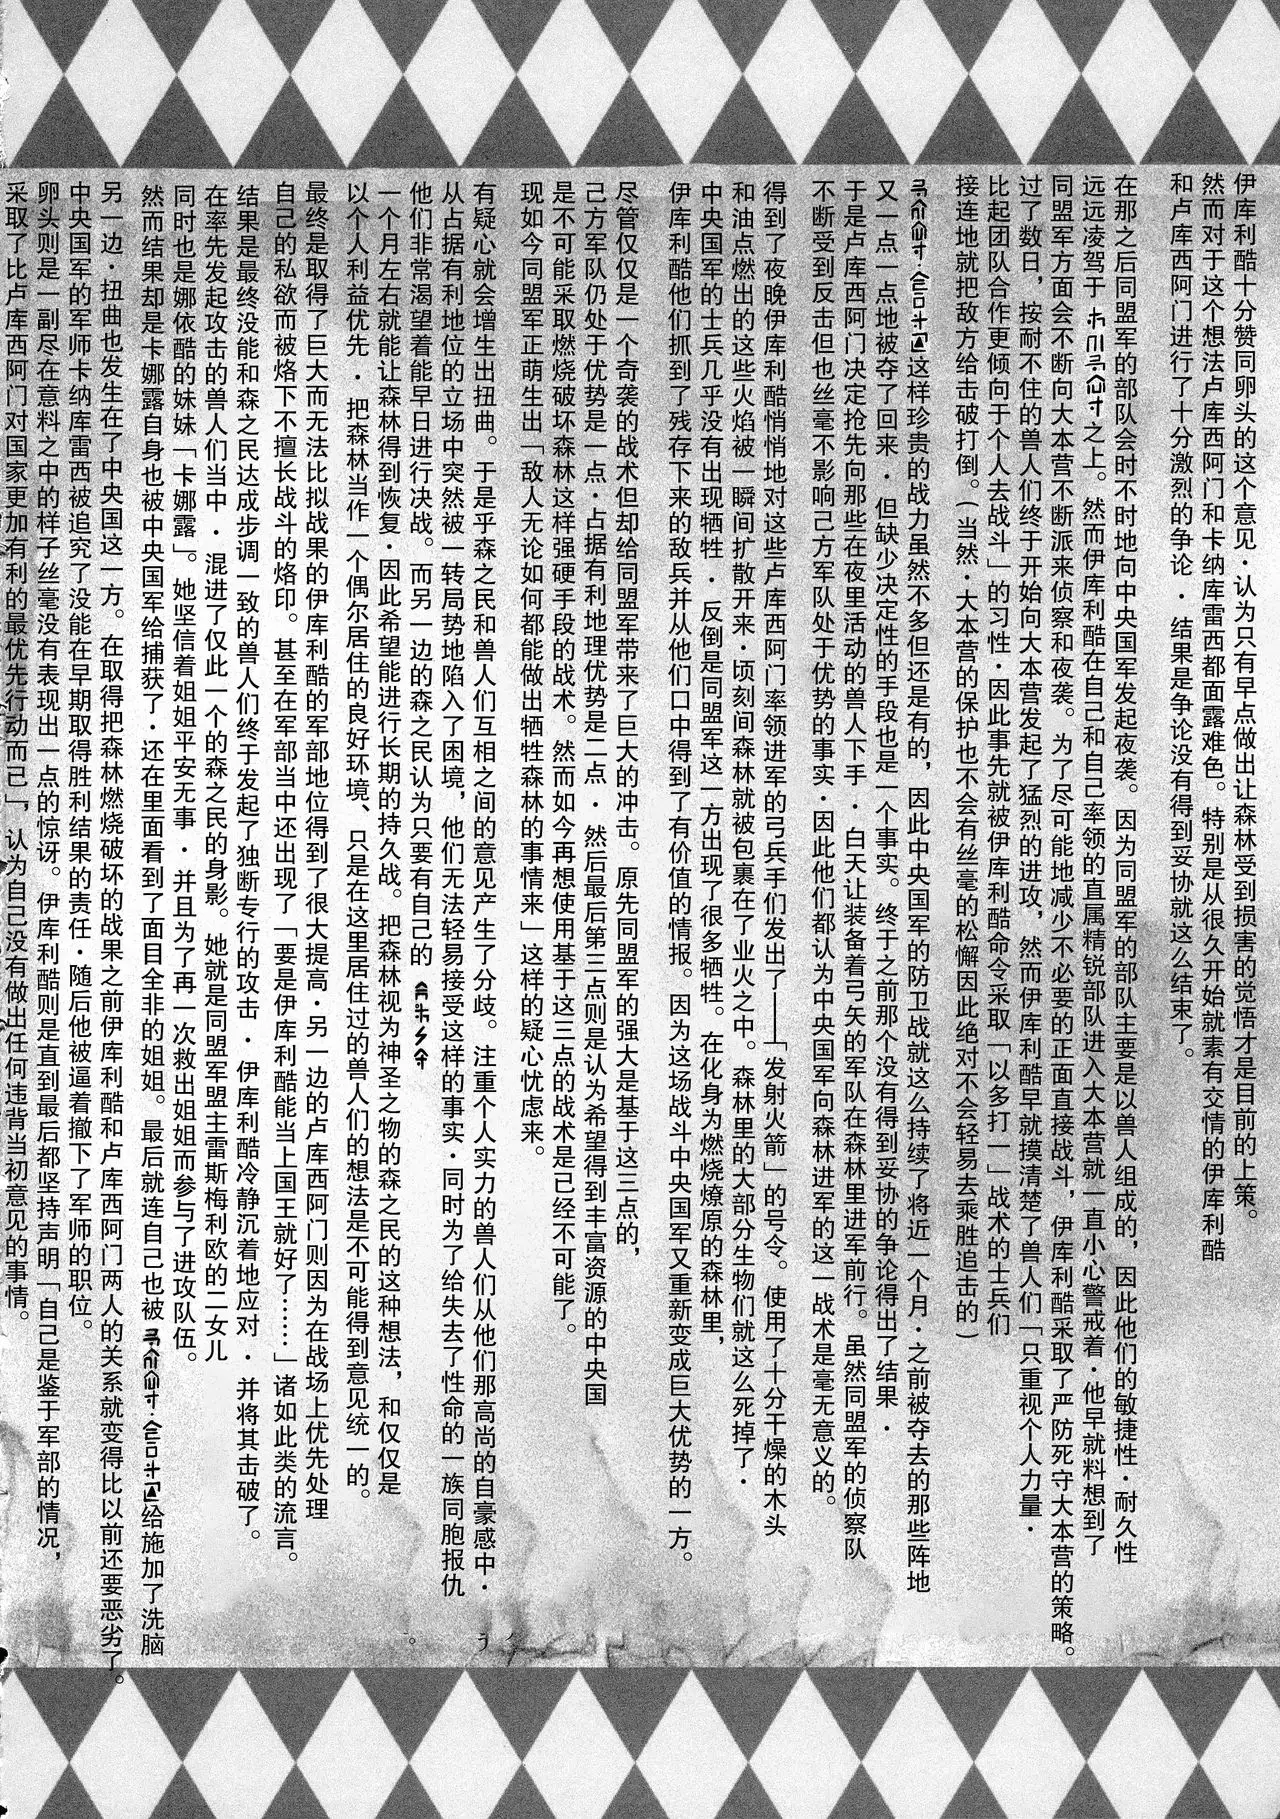 伊库利酷十分赞同卵头的这个意见·认为只有早点做出让森林受到损害的觉悟才是目前的上策。
然而对于这个想法卢库西阿门和卡纳库雷西都面露难色。特别是从很久开始就素有交情的伊库利酷
和卢库西阿门进行了十分激烈的争论·结果是争论没有得到妥协就这么结束了。
在那之后同盟军的部队会时不时地向中央国军发起夜袭。因为同盟军的部队主要是以兽人组成的，因此他们的敏捷性·耐久性
远远凌驾于
之上。然而伊库利酷在自己和自己率领的直属精锐部队进入大本营就一直小小心警戒着·他早就料想到了
同盟军方面会不断向大本营不断派来侦察和夜袭。为了尽可能地减少不必要的正面直接战斗，伊库利酷采取了严防死守大本营的策略。
过了数日，按耐不住的兽人们终于开始向大本营发起了猛烈的进攻，然而伊库利酷早就摸清楚了兽人们「只重视个人力量·
比起团队合作更倾向于个人去战斗」的习性·因此事先就被伊库利酷命令采取「以多打一」战术的士兵们
接连地就把敌方给击破打倒。（当然·大本营的保护也不会有丝毫的松懈因此绝对不会轻易去乘胜追击的）
这样珍贵的战力虽然不多但还是有的，因此中央国军的防卫战就这么持续了将近一个月·之前被夺去的那些阵地
又一点一点地被夺了回来·但缺少决定性的手段也是一个事实。终于之前那个没有得到妥协的争论得出了结果·
于是卢库西阿门决定抢先向那些在夜里活动的兽人下手·白天让装备着弓矢的军队在森林里进军前行。虽然同盟军的侦察队
不断受到反击但也丝毫不影响己方军队处于优势的事实·因此他们都认为中央国军向森林进军的这一战术是毫无意义的。
得到了夜晚伊库利酷悄悄地对这些卢库西阿门率领进军的弓兵手们发出了——「发射火箭」的号令。使用了十分干燥的木头
和油点燃出的这些火焰被一瞬间扩散开来·顷刻间森林就被包裹在了业火之中。森林里的大部分生物们就这么死掉了·
中央国军的士兵几乎没有出现牺牲·反倒是同盟军这一方出现了很多牺牲。在化身为燃烧燎原的森林里，
伊库利酷他们抓到了残存下来的敌兵并从他们口中得到了有价值的情报。因为这场战斗中央国军又重新变成巨大优势的一方。
尽管仅仅是一个奇袭的战术但却给同盟军带来了巨大的冲击。原先同盟军的强大是基于这三点的，
己方军队仍处于优势是一点·占据有利地理优势是二点·然后最后第三点则是认为希望得到丰富资源的中央国
是不可能采取燃烧破坏森林这样强硬手段的战术。然而如今再想使用基于这三点的战术是已经不可能了。
现如今同盟军正萌生出「敌人无论如何都能做出牺牲森林的事情来」这样的疑心忧虑来。
有疑心就会增生出扭曲。于是乎森之民和兽人们互相之间的意见产生了分歧。注重个人实力的兽人们从他们那高尚的自豪感中·
从占据有利地位的立场中突然被一转局势地陷入了困境，他们无法轻易接受这样的事实·同时为了给失去了性命的一族同胞报仇
他们非常渴望着能早日进行决战。而另一边的森之民认为只要有自己的
一个月左右就能让森林得到恢复·因此希望能进行长期的持久战。把森林视为神圣之物的森之民的这种想法，和仅仅是
以个人利益优先·把森林当作一个偶尔居住的良好环境、只是在这里居住过的兽人们的想法是不可能得到意见统一的。
最终是取得了巨大而无法比拟战果的伊库利酷的军部地位得到了很大提高·另一边的卢库西阿门则因为在战场上优先处理
自己的私欲而被烙下不擅长战斗的烙印。甚至在军部当中还出现了「要是伊库利酷能当上国王就好了……」诸如此类的流言。
结果是最终没能和森之民达成步调一致的兽人们终于发起了独断专行的攻击·伊库利酷冷静沉着地应对·并将其击破了。
在率先发起攻击的兽人们当中·混进了仅此一个的森之民的身影。她就是同盟军盟主雷斯梅利欧的二女儿
同时也是娜依酷的妹妹「卡娜露」。她坚信着姐姐平安无事·并且为了再一次救出姐姐而参与了进攻队伍。
然而结果却是卡娜露自身也被中央国军给捕获了·还在里面看到了面目全非的姐姐。最后就连自己也被
给施加了洗脑
另一边·扭曲也发生在了中央国这一方。在取得把森林燃烧破坏的战果之前伊库利酷和卢库西阿门两人的关系就变得比以前还要恶劣了。
中央国军的军师卡纳库雷西被追究了没能在早期取得胜利结果的责任·随后他被逼着撤下了军师的职位。
卵头则是一副尽在意料之中的样子丝毫没有表现出一点的惊讶。伊库利酷则是直到最后都坚持声明「自己是鉴于军部的情况，
采取了比卢库西阿门对国家更加有利的最优先行动而已」，认为自己没有做出任何违背当初意见的事情。